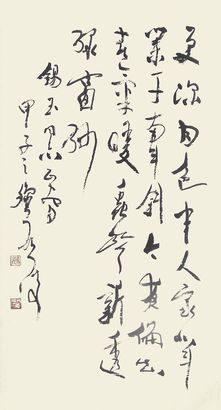 更深月色半人家北斗
闌干南斗斜今夜偏知
春氣暖蟲聲新透
綠窗紗
錫玉同志
甲子之